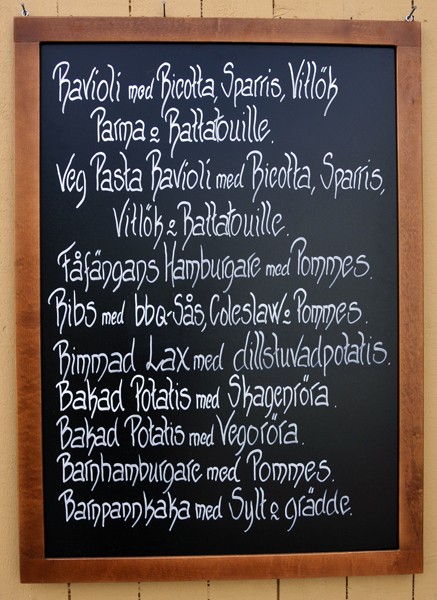 Ravioli med Ricotta, Sparris, Vitlök
Parma o Rattatouille.
Veg Pasta Ravioli med Ricotta, Sparris,
Vitlök o Rattatouille.
Fåfängans Hamburgare med Pommes.
Ribs med bbq-sås, Coleslaw o Pommes.
Rimmad Lax med dillstuvadpotatis.
Bakad Potatis med Skagenröra.
Bakad Potatis med Vegoröra.
Barnhamburgare med Pommes.
Barnpannkaka med Sylt o grädde.